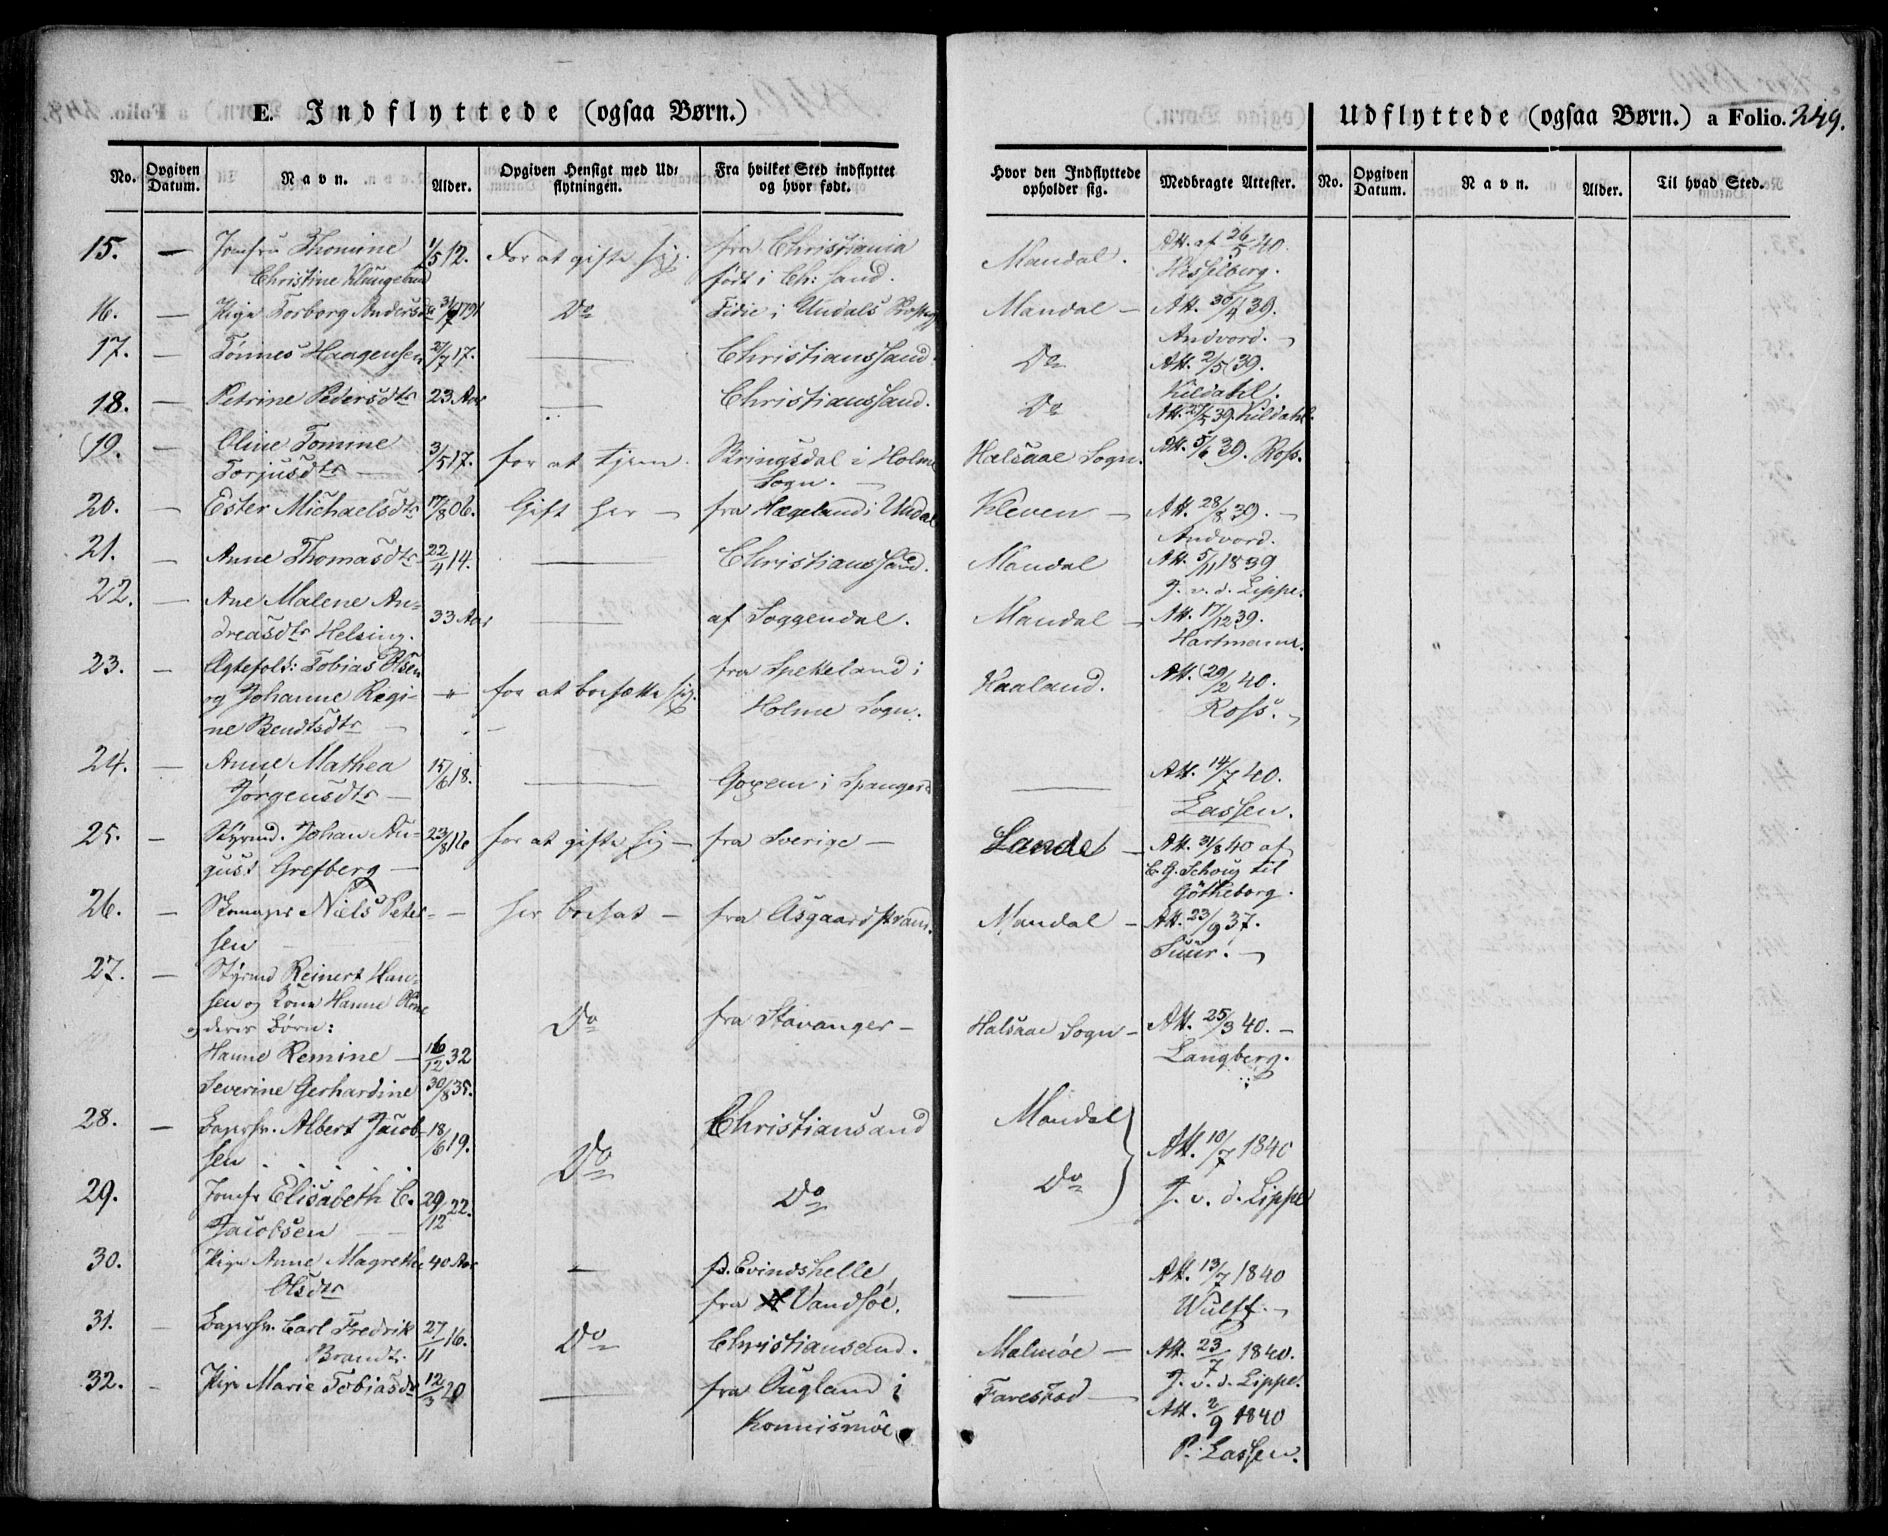 E. Indflyttede (ogsaa Børn.)
Udflyttede (ogsaa Børn.) a Folio. 249.
No. Opgiven Datum. Navn. Alder. Opgiven Hensigt med Udflytningen. Fra hvilket Sted indflyttet og hvor født. Hvor den Indflyttede opholder sig. Medbragte Attester. No. Opgiven Datum. Navn. Alder. Til hvad Sted.
15. — Jomfru Thomine 1/5 12. For at gifte sig. fra Christiania Mandal. Att. af 26/5 40.
Christine Klungeland født i Ch: sand. Hesselberg.
16. — Pige Torborg Andersdr 3/7 1791 Do Tidie i Undals Mandal — Att. 30/4 39.
Andvord.
17. — Tønnes Haagensen 2/7 17. — Christianssand. Do Att. 2/5 39.
Kildahl.
18. — Petrine Pedersdtr 23 Aar — Christianssand. Do Att. 27/5 39. Kildahl.
19. — Oline Tomine 3/5 17. for at tjene. Ringsdal i Holme Halsaae Sogn. Att. 5/6 39. Ross.
Torjusdtr — Sogn.
20. — Ester Michaelsdtr 17/8 06. Gift her — fra Hægeland i Undal Kleven — Att. 28/8 39. —
Andvord.
21. — Anne Thomasdtr 22/4 14. — Christianssand. Mandal Att. 5/11 1839
J. v. d. Lippe.
22. — Ane Malene An-
dreasdtr Helsing. 33 Aar — af Soggendal. Mandal — Att. 17/12 39.
Hartmann.
23. — Ægtefolk: Tobias Olsen fra Spetteland i
og Johanne Regi- — for at bosætte sig. Holme Sogn. Haaland. Att. 29/2 40.
ne Bendtsdtr — Ross.
24. — Anne Mathea 15/6 18. — Goxem i Spangere — Att. 14/7 40.
Jørgensdtr — Lassen.
25. — Styrmd. Johan Au- 23/8 16 for at gifte sig — fra Sverige — Landet — Att. 31/8 40 af
gust Grefberg — C. G. Schoug til
Götheborg.
26. — Skomager Niels Peter- — her bosat — fra Aasgaardstrand. Mandal — Att. 23/9 37.
sen Suur.
27. — Styrmd Reinert Han-
sen og Kone Hanne
og deres Børn: Do fra Stavanger — Halsaae Sogn — Att. 25/3 40. —
Hanne Remine — 16/12 32 Langberg.
Severine Gerhardine 30/8 35.
28. — Albert Jacob- 18/6 19. Do Christiansand Mandal
sen . . . . Att. 10/7 1840
29. Jomfr Elisabeth C. 29/12 22. Do Do J. v. d. Lippe
Jacobsen —
30. Pige Anne Magrethe 40 Aar — f. Evindshelle — Att. 13/7 1840
Olsdtr fra Vandsøe. Wulff. —
31. — Carl Fredrik 27/11 16. Do Christiansand. Malmøe — Att. 23/7 1840.
Brandt. J. v. d. Lippe.
32. — Pige Marie Tobiasdr 12/3 20 — fra Øugland i Farestad — Att. 2/9 1840
Konnismøe P. Lassen.